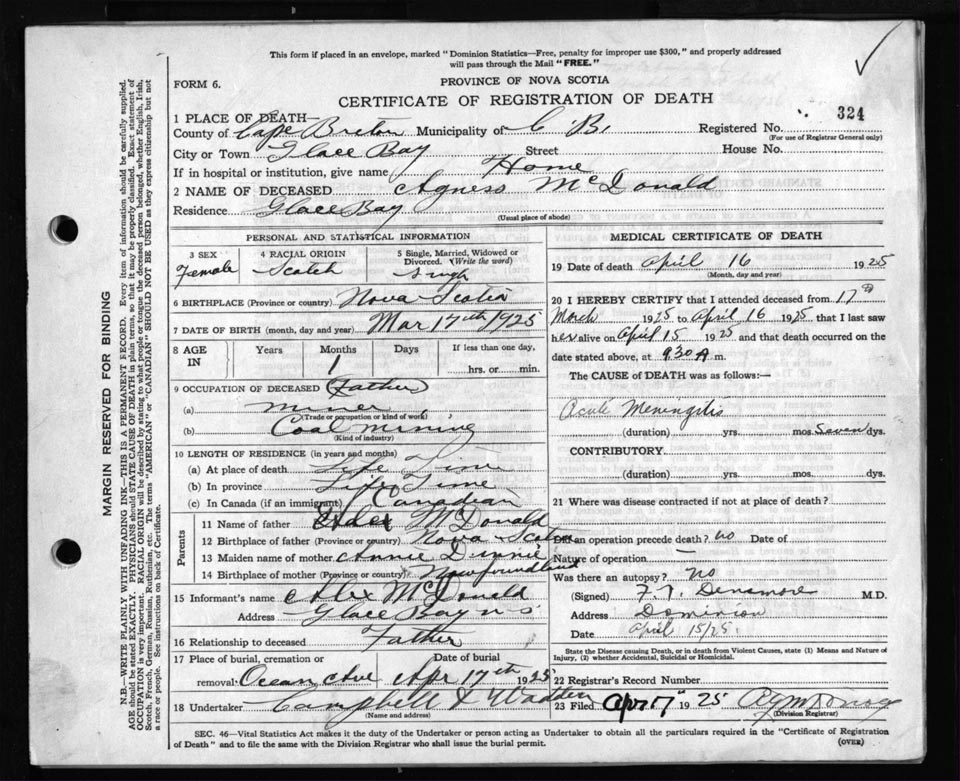 This form if placed in an envelope, marked "Dominion Statistics—Free, penalty for improper use $300," and properly addressed
will pass through the Mail "FREE."
FORM 6.
PROVINCE OF NOVA SCOTIA
CERTIFICATE OF REGISTRATION OF DEATH
324
1 PLACE OF DEATH—
County of Cape Breton Municipality of C B. Registered No.
(For use of Registrar General only)
City or Town Glace Bay Street House No.
If in hospital or institution, give name Home
2 NAME OF DECEASED Agness McDonald
Residence Glace Bay
(Usual place of abode)
PERSONAL AND STATISTICAL INFORMATION
3 SEX 4 RACIAL ORIGIN 5 Single, Married, Widowed or Divorced. (Write the word)
Female Scotch Singh
6 BIRTHPLACE (Province or country) Nova Scotia
7 DATE OF BIRTH (month, day and year) Mar 17th 1925
8 AGE IN Years Months Days If less than one day,
1 hrs. or min.
9 OCCUPATION OF DECEASED (Father)
(a) miner
(Trade or occupation or kind of work)
(b) Coal mining
(Kind of industry)
10 LENGTH OF RESIDENCE (in years and months)
(a) At place of death Life Time
(b) In province Life Time
(c) In Canada (if an immigrant) Canadian
Parents
11 Name of father Alex McDonald
12 Birthplace of father (Province or country) Nova Scotia
13 Maiden name of mother Annie
14 Birthplace of mother (Province or country) Newfoundland
15 Informant's name Alex McDonald
Address Glace Bay N S
16 Relationship to deceased Father
17 Place of burial, cremation or removal Date of burial
Ocean Ave Apr 17th 1925
18 Undertaker Campbell & Wadden
(Name and address)
MEDICAL CERTIFICATE OF DEATH
19 Date of death April 16 1925
(Month, day and year)
20 I HEREBY CERTIFY that I attended deceased from 17th
March 1925 to April 16 1925 that I last saw
her alive on April 15 1925 and that death occurred on the
date stated above, at 9 30 A m.
The CAUSE of DEATH was as follows:—
Acute Meningitis
(duration) yrs. mos. Seven dys.
CONTRIBUTORY.
(duration) yrs. mos. dys.
21 Where was disease contracted if not at place of death?
Did an operation precede death? no Date of
Nature of operation —
Was there an autopsy? no
(Signed) F. T. Densmore M.D.
Address Dominion
Date April 15/25.
State the Disease causing Death, or in death from Violent Causes, state (1) Means and Nature of
Injury, (2) whether Accidental, Suicidal or Homicidal.
22 Registrar's Record Number
23 Filed Apr 17" 1925
(Division Registrar)
SEC. 46—Vital Statistics Act makes it the duty of the Undertaker or person acting as Undertaker to obtain all the particulars required in the "Certificate of Registration
of Death" and to file the same with the Division Registrar who shall issue the burial permit.
(OVER)
MARGIN RESERVED FOR BINDING
N.B.—WRITE PLAINLY WITH UNFADING INK—THIS IS A PERMANENT RECORD. Every item of information should be carefully supplied.
AGE should be stated EXACTLY. PHYSICIANS should STATE CAUSE OF DEATH in plain terms, so that it may be properly classified. Exact statement of
OCCUPATION is very important. RACIAL ORIGIN will be described by stating to what people or tongue the deceased person belonged, whether English, Irish,
Scotch, French, German, Russian, Ruthenian, etc. The terms "AMERICAN" or "CANADIAN" SHOULD NOT BE USED as they express citizenship but not
a race or people. See instructions on back of Certificate.